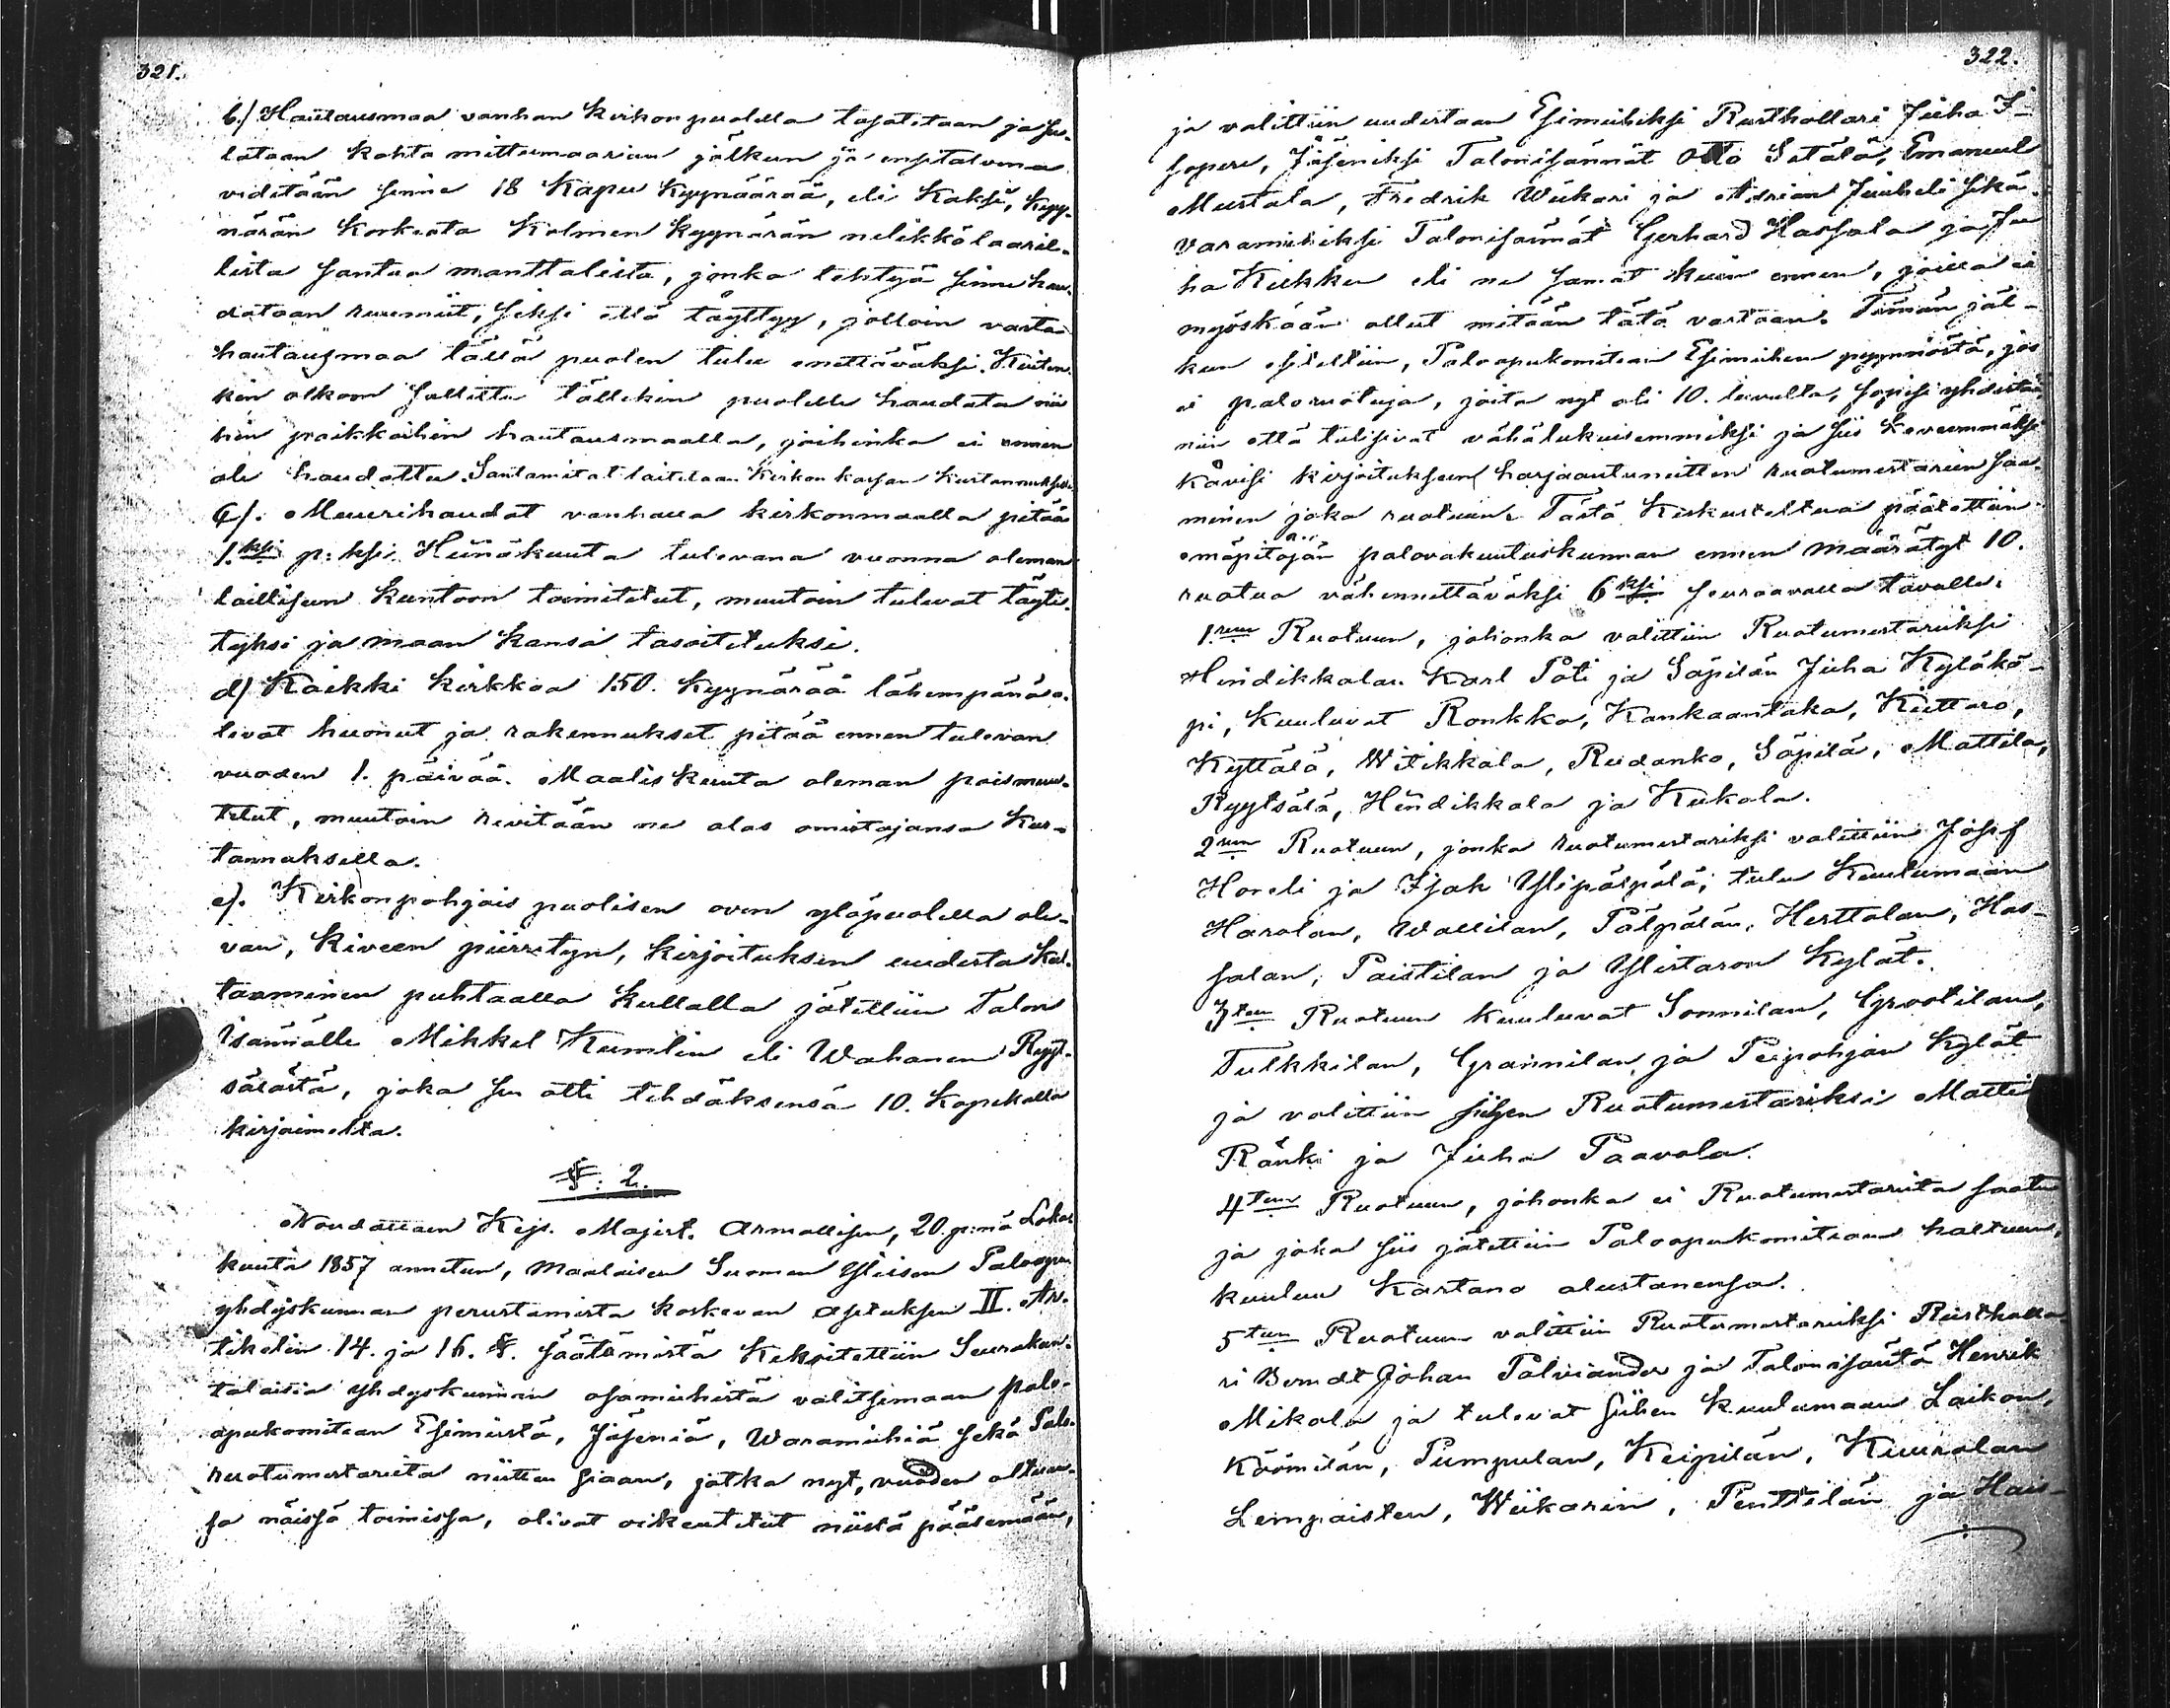 321.
b/ Hautausmaa vanhan kirkon puolella tasatetaan ja ja-
lataan kahta mittumaarian jälkun ja ensitalvena
vedetään sinne 18 Kapu Kyynäärää, eli Kaksi, kyy-
närän Korkiata Kolmen kyynärän nelikkölaaril-
lista Santaa manttalista, jonka tehtyä sinne hau-
dataan ruumiit, seksi että täyttyy, jolloin vasta
hautausmaa tällä puolen tulee enettäväksi. Kuiten-
kin olkoon sallittu tällekin puolelle haudata nii
hin paikkoihin hautausmaalla, joihinka ei ennen
ole haudattu. Santamitat laitetaan Kirkon kassan Kustannuksella
c/. Muurihaudat vanhalla kirkonmaalla pitää
1.ksi p:ksi Heinäkuuta tulevana vuonna oleman
lailliseen kuntoon toimitetut, muutoin tulevat täyte-
tyksi ja maan kansa tasoitetuksi.
d/ Kaikki kirkkoa 150. Kyynärää lähempänä o-
levat huonet ja rakennukset pitää ennen tulevan
vuoden 1. päivää Maalis kuuta oleman pois muu-
tetut, muutoin revitään ne alas omistajansa Kus-
tannuksella.
e/. Kirkon pohjois puolisen oven yläpuolella ole-
van, Kiveen piirretyn, kirjoituksen uudesta kul-
taaminen puhtaalla kullalla jätettiin Talon
isännälle Mikkel Kumlin eli Wahanen Ryyt-
sälästä, joka sen otti tehdäksensä 10. Kopekalla
kirjaimelta.
§: 2.
Noudattaen Kejs. Majest. Armollisen, 20. p:nä Loka-
kuuta 1857 annetun, Maalaisen Suomen Yleisen Paloapu
yhdyskunnan perustamista koskevan asetuksen II. Ar-
tikelin 14. ja 16. §. säätämistä Keksitettiin Seurakun-
talaisia yhdyskunnan osamiehistä valitsemaan palo-
apukomitean Esimiestä, Jäseniä, Waramiehiä sekä Palo-
ruotumestareita niitten siaan, jotka nyt, vuoden oltuan-
sa näissä toimissa, olivat oikeutetut niistä pääsemään,
322.
ja valittiin uudestaan Esimieheksi Rusthollari Juha I-
sopere, Jäseniksi Talonisännät Otto Setälä, Emanuel
Mustala, Fredrik Wiikari ja Adrian Juuheli sekä
varamieheksi Talonisännät Gerhard Hassala ja Ju
ha Kiekku eli ne samat kuin ennen, joilla ei
myöskään ollut mitään tätä vastaan. Tämän jäl-
keen esiteltiin, Paloapukomitean Esimiehen pyynnöstä, jos
ei paloruotuja, joita nyt oli 10. luvulta, sopisi yhdistää
niin että tulisivat vähälukuisemmiksi ja siis keveemmäksi
kävisi kirjoitukseen harjaantuneitten ruotumestarien saa-
minen joka ruotuun. Tästä Keskusteltua päätettiin
emäpitäjän palovakuutuskunnan ennen määrätyt 10.
ruotua vähennettäväksi 6ksi seuraavalla tavalla.
1.seen Ruotuun, johonka valittiin Ruotumestariksi
Hindikkalan Karl Päti ja Säpilän Juha Kyläkä-
pi, kuuluvat Ronkka, Kankaantaka, Kiettare,
Kyttälä, Witikkala, Rudanko, Säpilä, Mattila,
Ryytsälä, Hendikkala ja Kukola.
2seen Ruotuun, jonka ruotumestariksi valittiin Josef
Horeli ja Isak Ylipälpälä; tulee Kuulumaan
Harolan, Wallilan, Pälpälän, Herttolan, Has-
salan, Paistilan ja Ylistaron Kylät.
3teen Ruotuun kuuluvat Sonnilan, Grootilan,
Tulkkilan, Grannilan, ja Peipohjan kylät
ja valittiin siihen Ruotumestariksi Matti
Ränki ja Juha Paavola.
4teen Ruotuun, johonka ei Ruotumestareita saatu
ja joka siis jätettiin Paloapukomitean haltuun,
kuuluu Kartano alustanensa.
5teen Ruotuun valittiin Ruotumestariksi Rusthalla-
ri Berndt Johan Palviander ja Talonisäntä Henrik
Mikola ja tulevat siihen Kuulumaan Laikon,
Köömilän, Pumpulan, Keipilän, Kuurolan
Lempaisten, Wiikarin, Penttilän ja Hais-